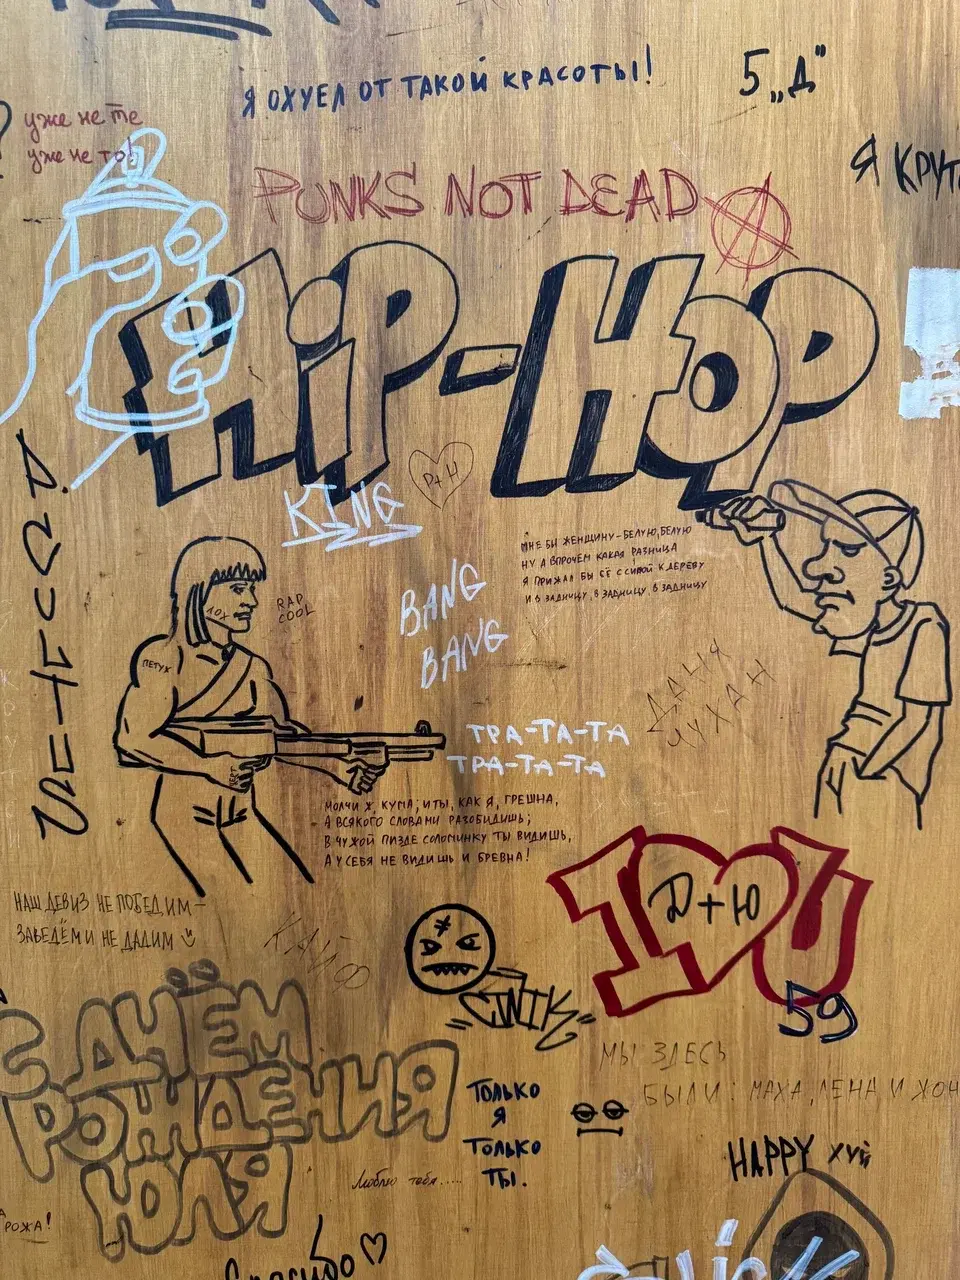 Я ОХУЕЛ ОТ ТАКОЙ КРАСОТЫ!
5„Д"
уже не те
уже не то!
Я КРУТ
PUNKS NOT DEAD
HIP-HOP
P+H
KING
МНЕ БЫ ЖЕНЩИНУ-БЕЛУЮ, БЕЛУЮ
НУ А ВПРОЧЕМ КАКАЯ РАЗНИЦА
Я ПРИЖАЛ БЫ ЕЁ С СИЛОЙ К ДЕРЕВУ
И В ЗАДНИЦУ, В ЗАДНИЦУ В ЗАДНИЦУ
RAP
COOL
ЛОХ
ПЕТУХ
BANG
BANG
ДАНЯ
ЛУХАН
ТРА-ТА-ТА
ТРА-ТА-ТА
МОЛЧИ Ж, КУМА; И ТЫ, КАК Я, ГРЕШНА,
А ВСЯКОГО СЛОВАМИ РАЗОБИДИШЬ;
В ЧУЖОЙ ПИЗДЕ СОЛОМИНКУ ТЫ ВИДИШЬ,
А У СЕБЯ НЕ ВИДИШЬ И БРЕВНА!
I U
Д+Ю
59
НАШ ДЕВИЗ НЕ ПОБЕДИМ-
ЗАВЕДЁМ И НЕ ДАДИМ
КАЙФ
CINIK
С ДНЁМ
РОЖДЕНИЯ
ЮЛЯ
МЫ ЗДЕСЬ
БЫЛИ: МАХА, ЛЕНА И ЖОН
ТОЛЬКО
Я
ТОЛЬКО
ТЫ.
HAPPY ХУЙ
Люблю тебя.....
РОЖА!
Спасибо